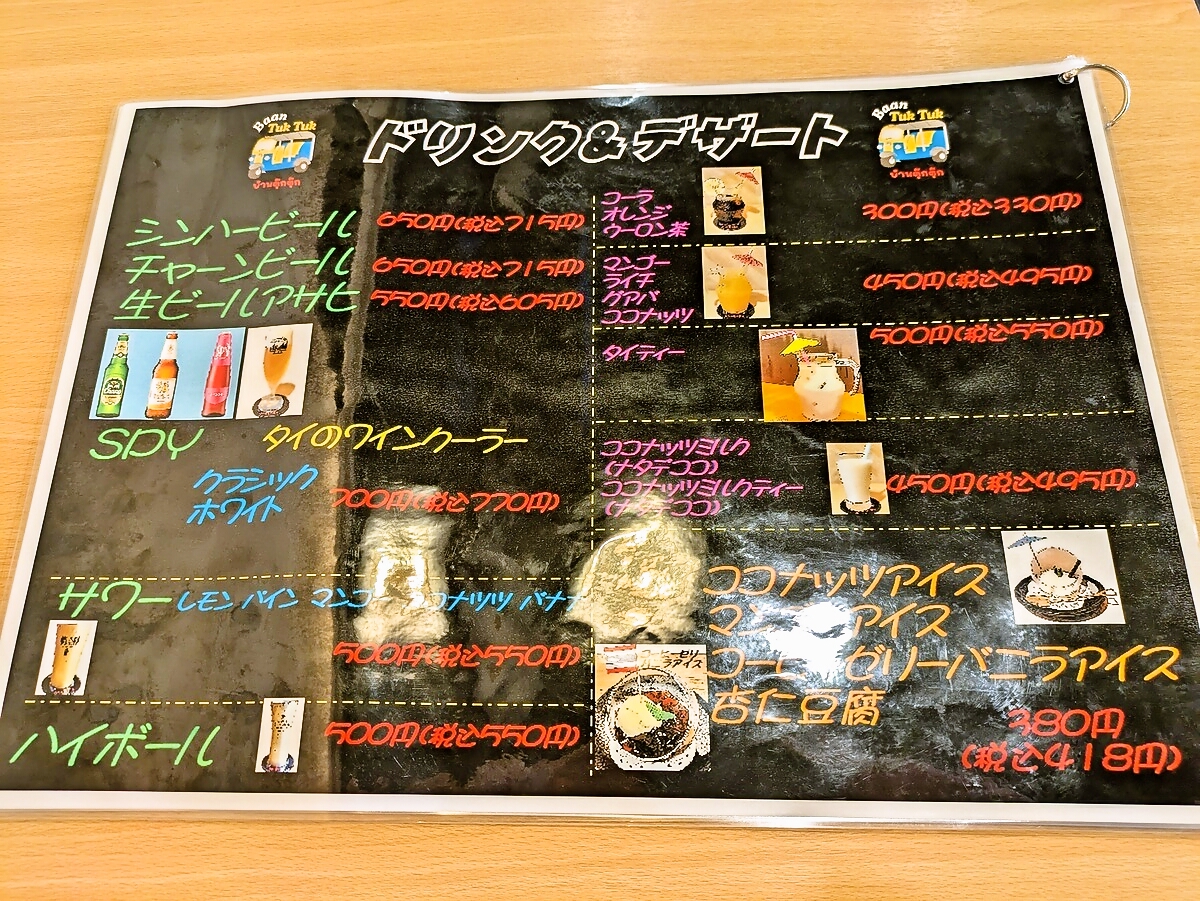 Baan
Tuk Tuk
บ้านตุ๊กตุ๊ก
ドリンク&デザート
Baan
Tuk Tuk
บ้านตุ๊กตุ๊ก
シンハービール 650円(税込715円)
チャーンビール 650円(税込715円)
生ビールアサヒ 550円(税込605円)
SPY タイのワインクーラー
クラシック
ホワイト 700円(税込770円)
サワー レモン パイン マンゴ ココナッツ バナナ
500円(税込550円)
ハイボール 500円(税込550円)
コーラ
オレンジ
ウーロン茶
300円(税込330円)
マンゴー
ライチ
グアバ
ココナッツ
450円(税込495円)
タイティー
500円(税込550円)
ココナッツミルク
(ナタデココ)
ココナッツミルクティー
(ナタデココ)
450円(税込495円)
ココナッツアイス
マンゴーアイス
コーヒーゼリーバニラアイス
杏仁豆腐
380円
(税込418円)